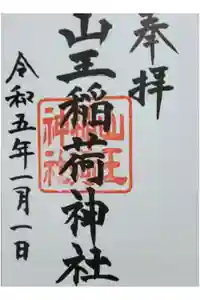 奉拝
山王稲荷神社
令和五年一月一日